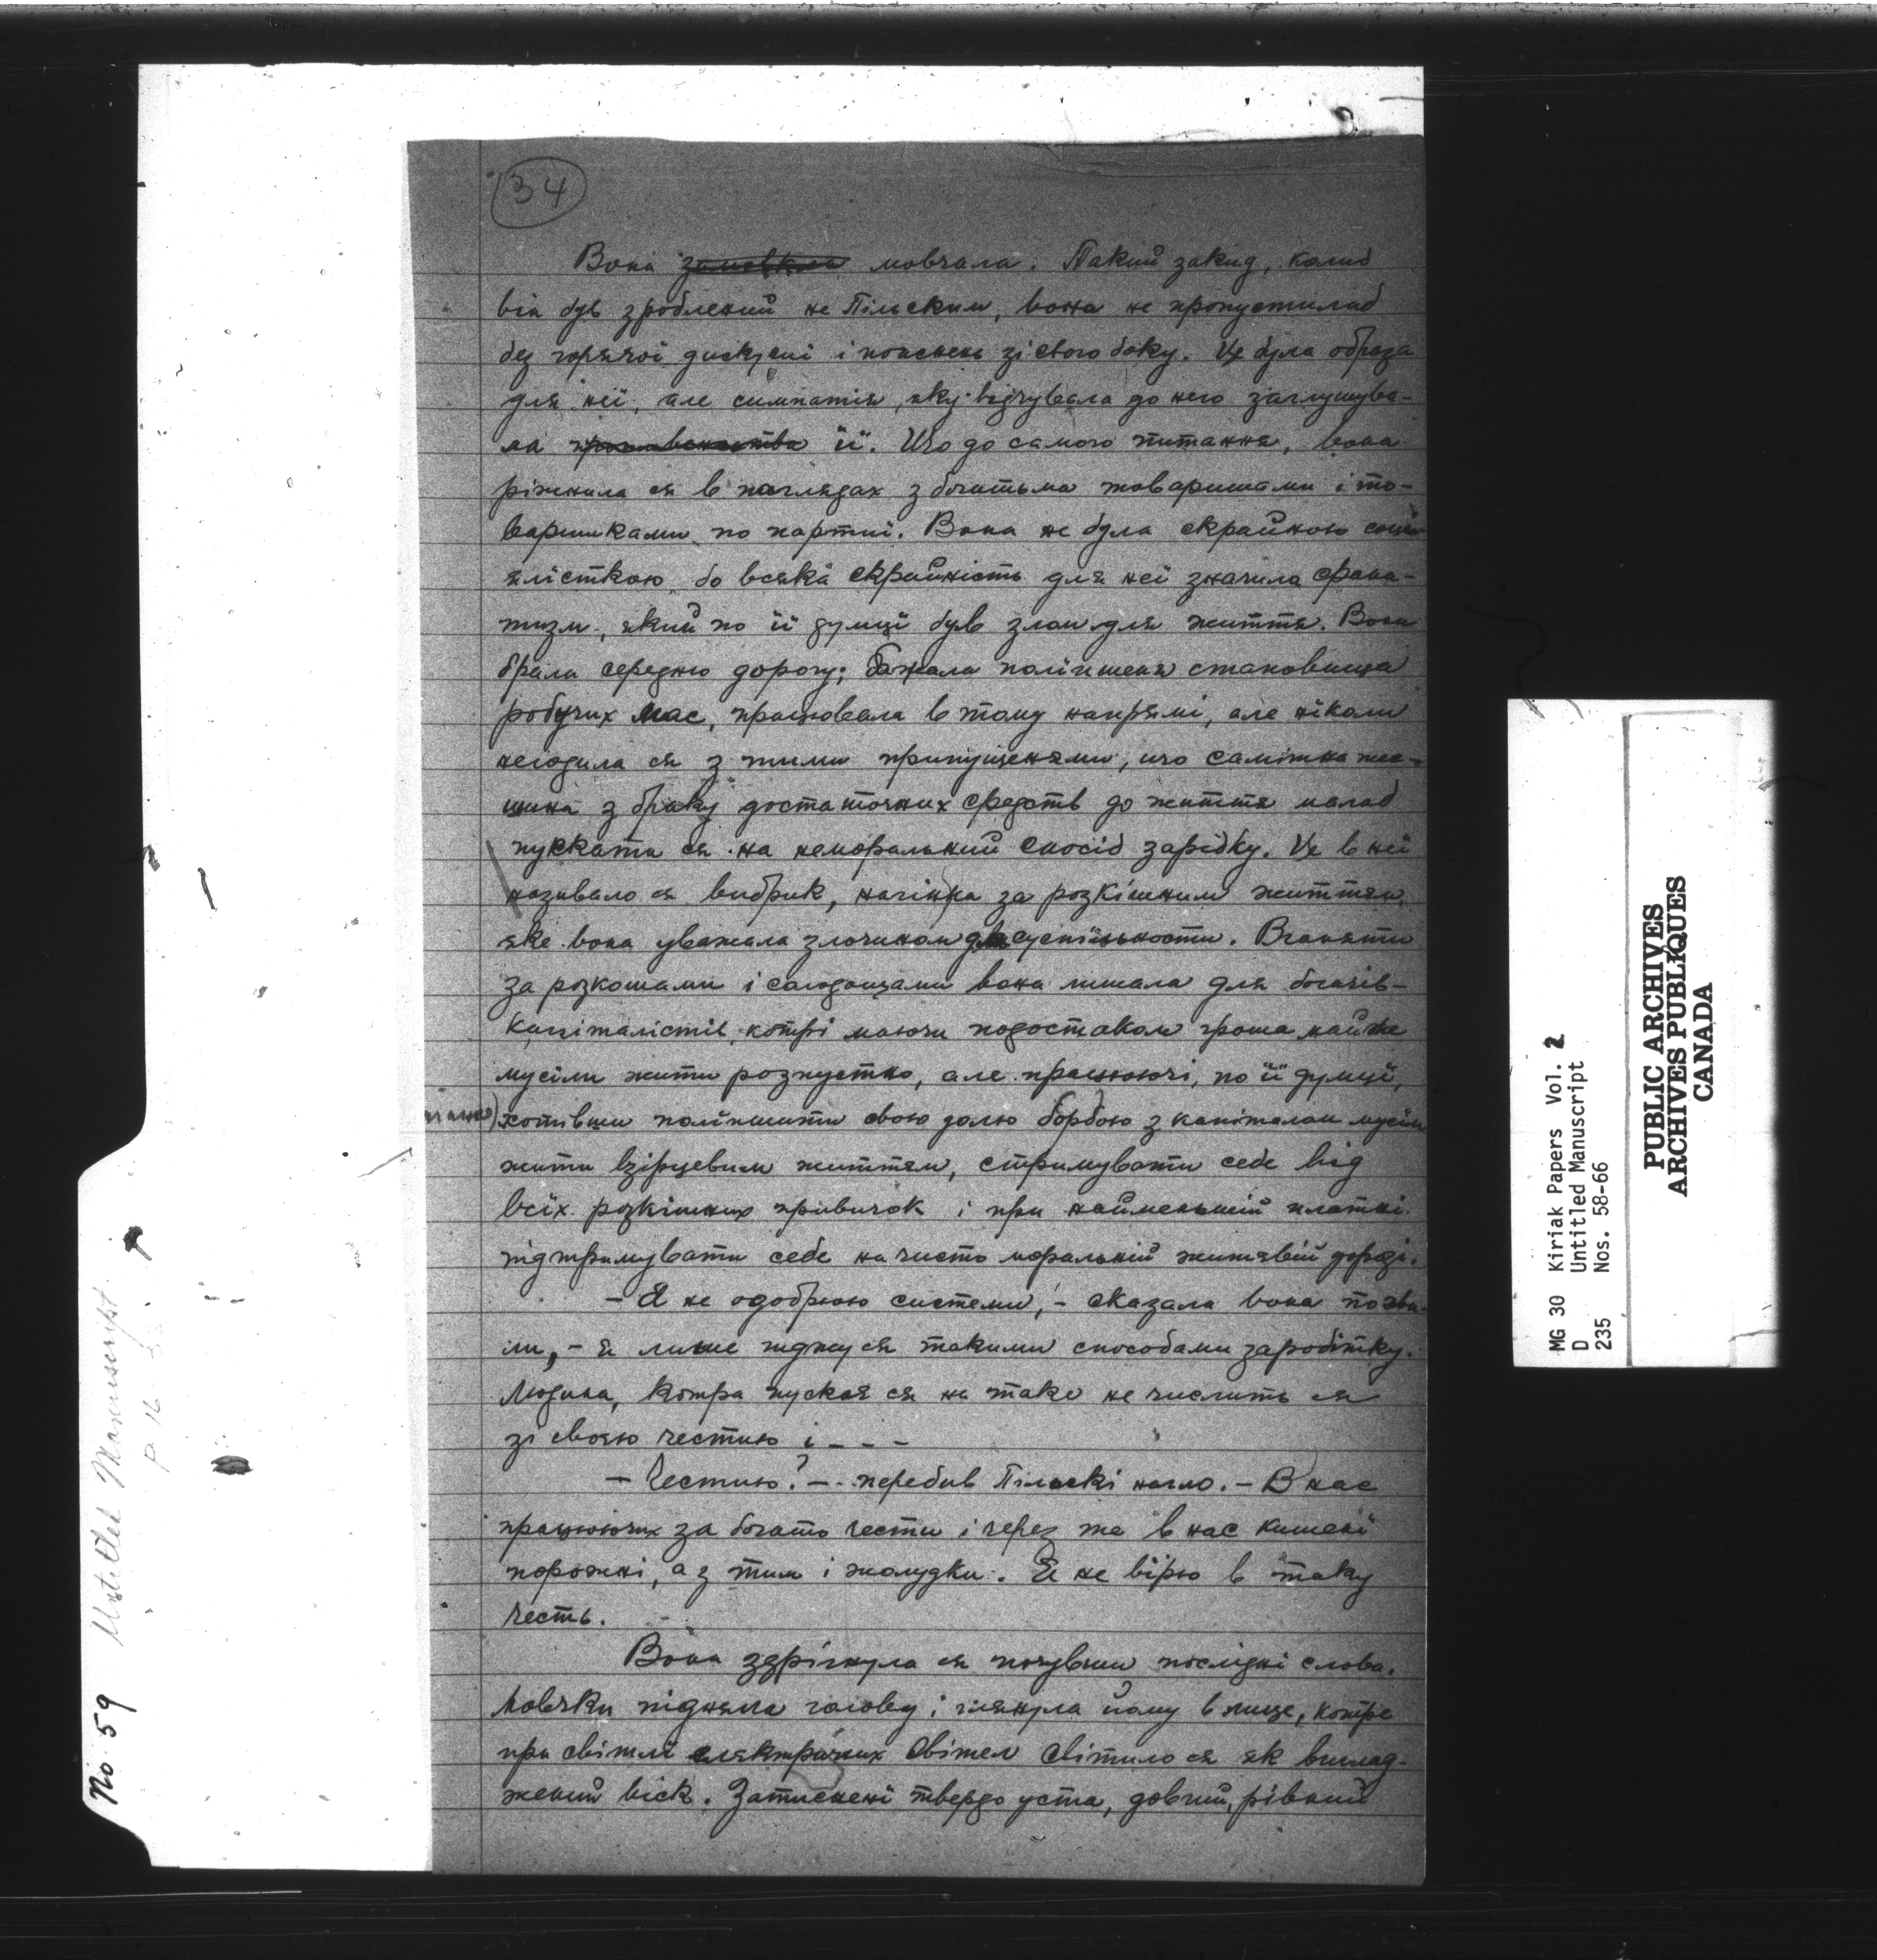 34
Вона замовкла мовчала. Такий закид, колиб
він був зроблений не Пільским, вона не пропустилаб
без горячої дискусиї і пояснень зі свого боку. Це була образа
для неї, але симпатія, яку відчувала до него заглушува-
ла її. Що до самого питання, вона
ріжнила ся в поглядах з богатьма товаришами і то-
варишками по партиї. Вона не була скрайною соці-
ялісткою бо всяка скрайність для неї значила фана-
тизм, який по її думці був злом для життя. Вона
брала середню дорогу; бажала поліпшеня становища
робучих мас, працювала в тому напрямі, але ніколи
негодила ся з тими припущенями, що самітна жен-
щина з браку достаточних средств до життя малаб
пускати ся на неморальний спосіб зарібку. Це в неї
називало ся вибрик, за розкішним життям,
яке вона уважала злочином для суспільности. Вганяти
за розкошами і солодощами вона лишала для богачів-
капіталістів, котрі маючи подостаком гроша майже
мусіли жити розпустно, але працюючі, по її думці,
хотівши поліпшити свою долю борбою з капіталом мусіли
жити взірцевим життям, стримувати себе від
всіх розкішних привичок і при найменьшій платні
підтримувати себе на чисто моральній життєвій дорозі.
– Я не одобрюю системи, – сказала вона по хви-
лі, – я лише гиджу ся такими способами заробітку.
Людина, котра пускає ся на таке не числить ся
зі своєю честию і – – –
– Честию? – перебив Пільскі нагло. – В нас
працюючих за богато чести і через те в нас кишені
порожні, а з тим і жолудки. Я не вірю в таку
честь.
Вона здрігнула ся почувши послідні слова.
Мовчки підняла голову і глянула йому в лице, котре
при світлі електричних світел світило ся як виглад-
жений віск. Затиснені твердо уста, довгий, рівний
No 59 Untitled Manuscript
P 16
MG 30 Kiriak Papers Vol. 2
D Untitled Manuscript
235 Nos. 58-66
PUBLIC ARCHIVES
ARCHIVES PUBLIQUES
CANADA